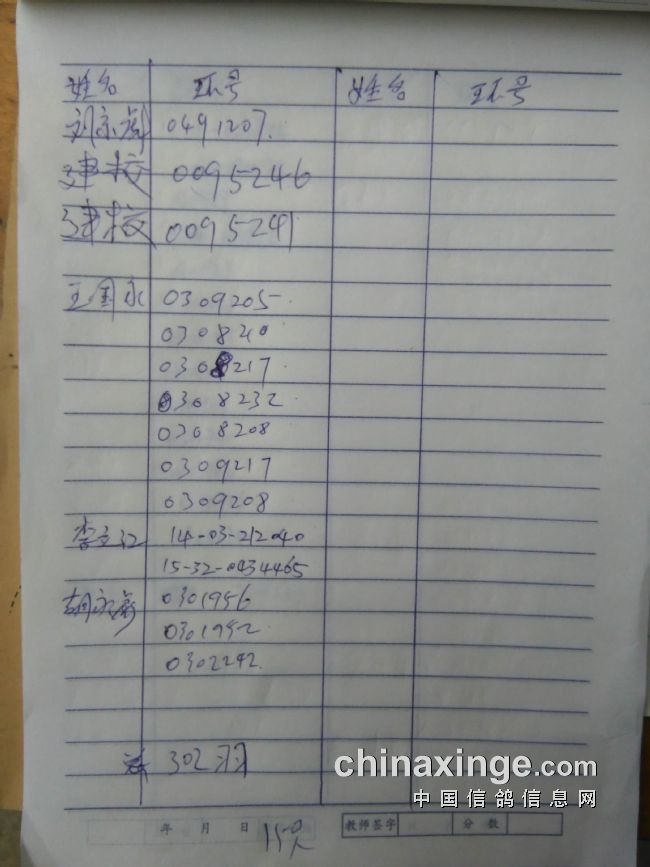 姓名 环号 姓名 环号
刘京 0491207.
建校 0095246
建校 0095241
王国永 0309205
030820
0308217
0308232
0308208
0309217
0309208
李立江 14-03-212040
15-32-0434465
胡永 0301956
0301952
0302242
302羽
chinaxinge.com
中国信鸽信息网
年 月 日 教师签字 分数